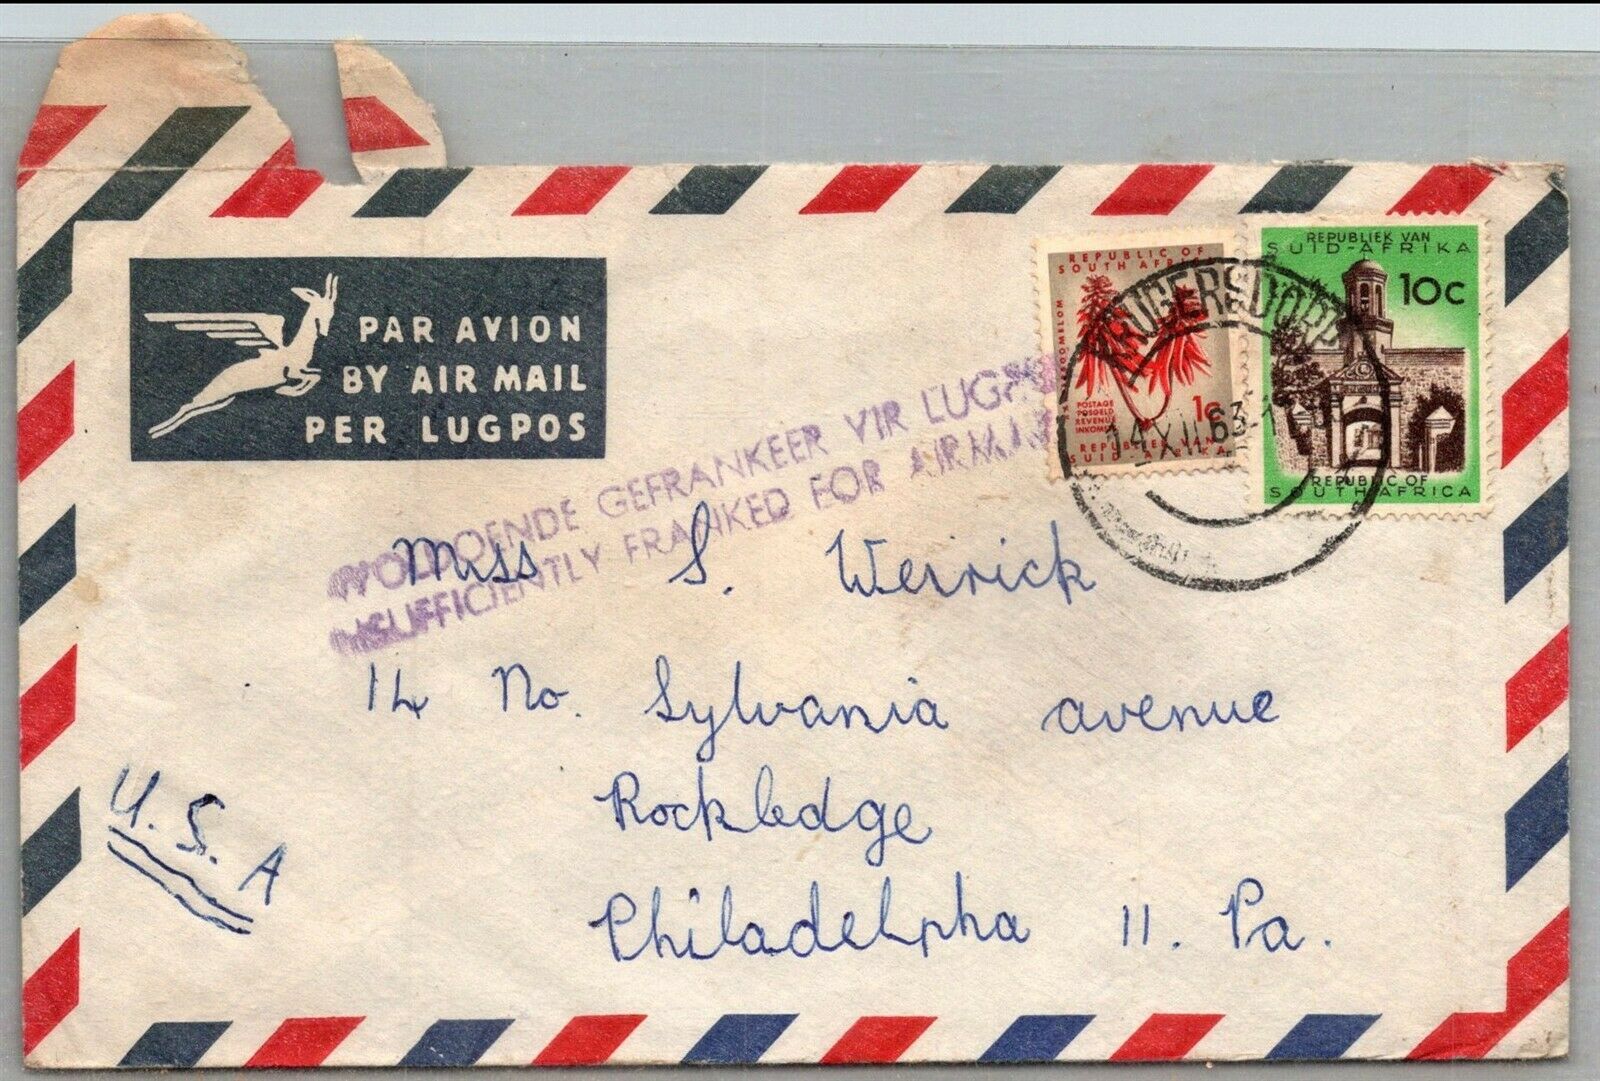 PAR AVION
BY AIR MAIL
PER LUGPOS
REPUBLIC OF
SOUTH AFRICA
POSTAGE
POSGELD
REVENUE
INKOMSTE
1c
REPUBLIEK VAN
SUID-AFRIKA
REPUBLIEK VAN
SUID-AFRIKA
10c
REPUBLIC OF
SOUTH AFRICA
KRUGERSDORP
14 XII 63
VOLDOENDE GEFRANKEER VIR LUGPOS
INSUFFICIENTLY FRANKED FOR AIRMAIL
Miss S. Werrick
14 No. Sylvania avenue
Rockledge
Philadelphia 11. Pa.
U.S.A